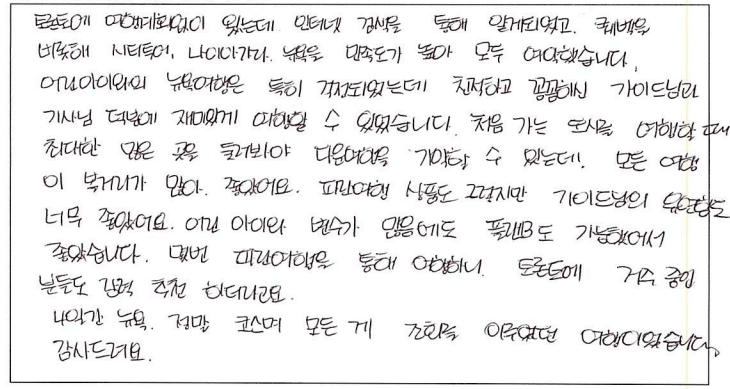 토론토에 여행계획없이 왔는데 인터넷 검색을 통해 알게되었고. 퀘벡을
비롯해 시티투어, 나이아가라. 뉴욕을 만족도가 높아 모두 예약했습니다.
어린아이와의 뉴욕여행은 특히 걱정되었는데 친절하고 꼼꼼하신 가이드님과
기사님 덕분에 재미있게 여행할 수 있었습니다. 처음 가는 도시를 여행할 때
최대한 많은 곳을 둘러봐야 다음여행을 기약할 수 있는데!. 모든 여행
이 볶거리가 많아. 좋았어요. 파란여행 상품도 그렇지만 가이드님의 유연함도
너무 좋았어요. 어린 아이와 변수가 있음에도 플랜B도 가능했어서
좋았습니다. 몇번 파란여행을 통해 여행하니. 토론토에 거주 중인
분들도 강력 추천 하더라고요.
4일간 뉴욕. 정말 코스며 모든 게 조화를 이루었던 여행이었습니다.
감사드려요.